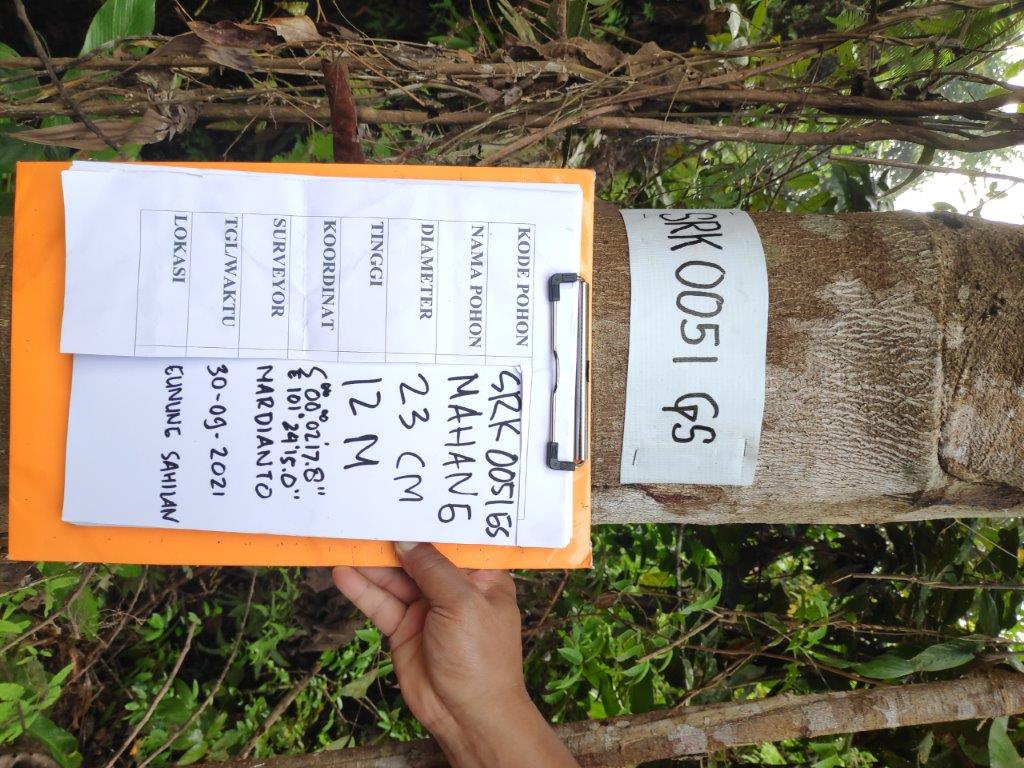 SRK 0051 GS
KODE POHON SRK 0051 GS
NAMA POHON MAHANG
DIAMETER 23 CM
TINGGI 12 M
KOORDINAT S 00°02'17.8"
E 101°24'15.0"
SURVEYOR MARDIANTO
TGL/WAKTU 30-09-2021
LOKASI GUNUNG SAHILAN